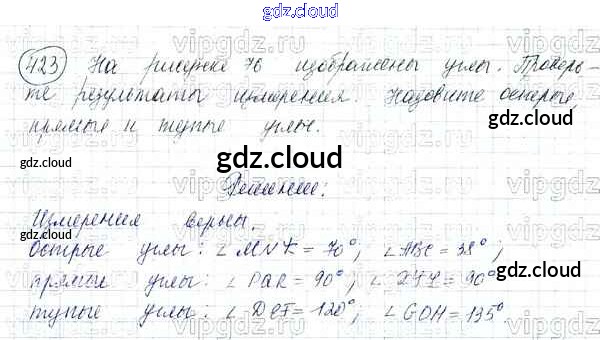 gdz.cloud
423 На рисунке 76 изображены углы. Проверь-
те результаты измерения. Назовите острые,
прямые и тупые углы.
gdz.cloud
gdz.cloud
gdz.cloud
Решение:
Измерения верны.
острые углы: ∠MNK = 70°; ∠ABC = 38°;
прямые углы: ∠PAR = 90°; ∠XYZ = 90°
тупые углы: ∠DEF = 120°; ∠GOH = 135°
gdz.cloud
gdz.cloud
gdz.cloud